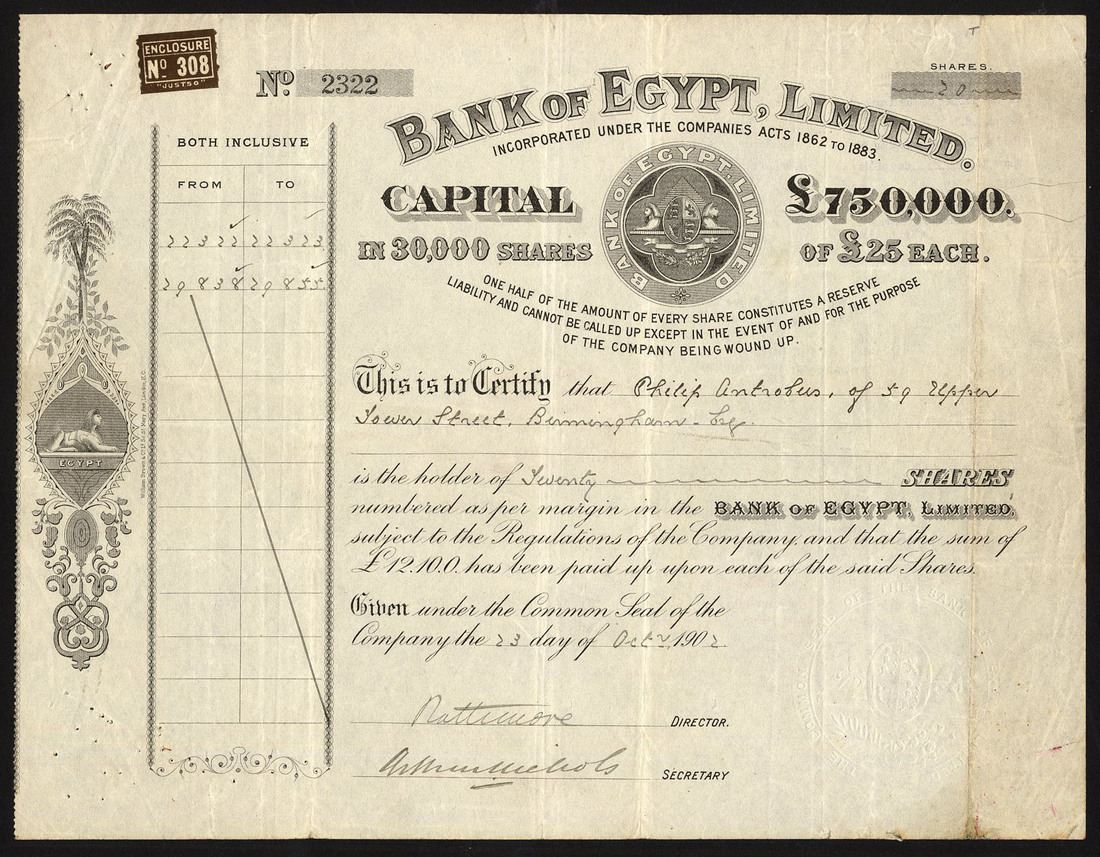 ENCLOSURE
No 308
"JUSTSO"
No. 2322
SHARES.
20
BANK OF EGYPT, LIMITED.
INCORPORATED UNDER THE COMPANIES ACTS 1862 TO 1883.
BANK OF EGYPT. LIMITED
CAPITAL £750,000.
IN 30,000 SHARES OF £25 EACH.
ONE HALF OF THE AMOUNT OF EVERY SHARE CONSTITUTES A RESERVE
LIABILITY AND CANNOT BE CALLED UP EXCEPT IN THE EVENT OF AND FOR THE PURPOSE
OF THE COMPANY BEING WOUND UP.
BOTH INCLUSIVE
FROM TO
22322 22323
29838 29855
EGYPT
This is to Certify that Philip Antrobus, of 59 Upper
Tower Street, Birmingham - Esq.
is the holder of Twenty SHARES
numbered as per margin in the BANK OF EGYPT, LIMITED,
subject to the Regulations of the Company, and that the sum of
£12.10.0. has been paid up upon each of the said Shares.
Given under the Common Seal of the
Company the 23 day of Octr 1902
Rathmore DIRECTOR.
Arthur Nichols SECRETARY
OF THE BANK